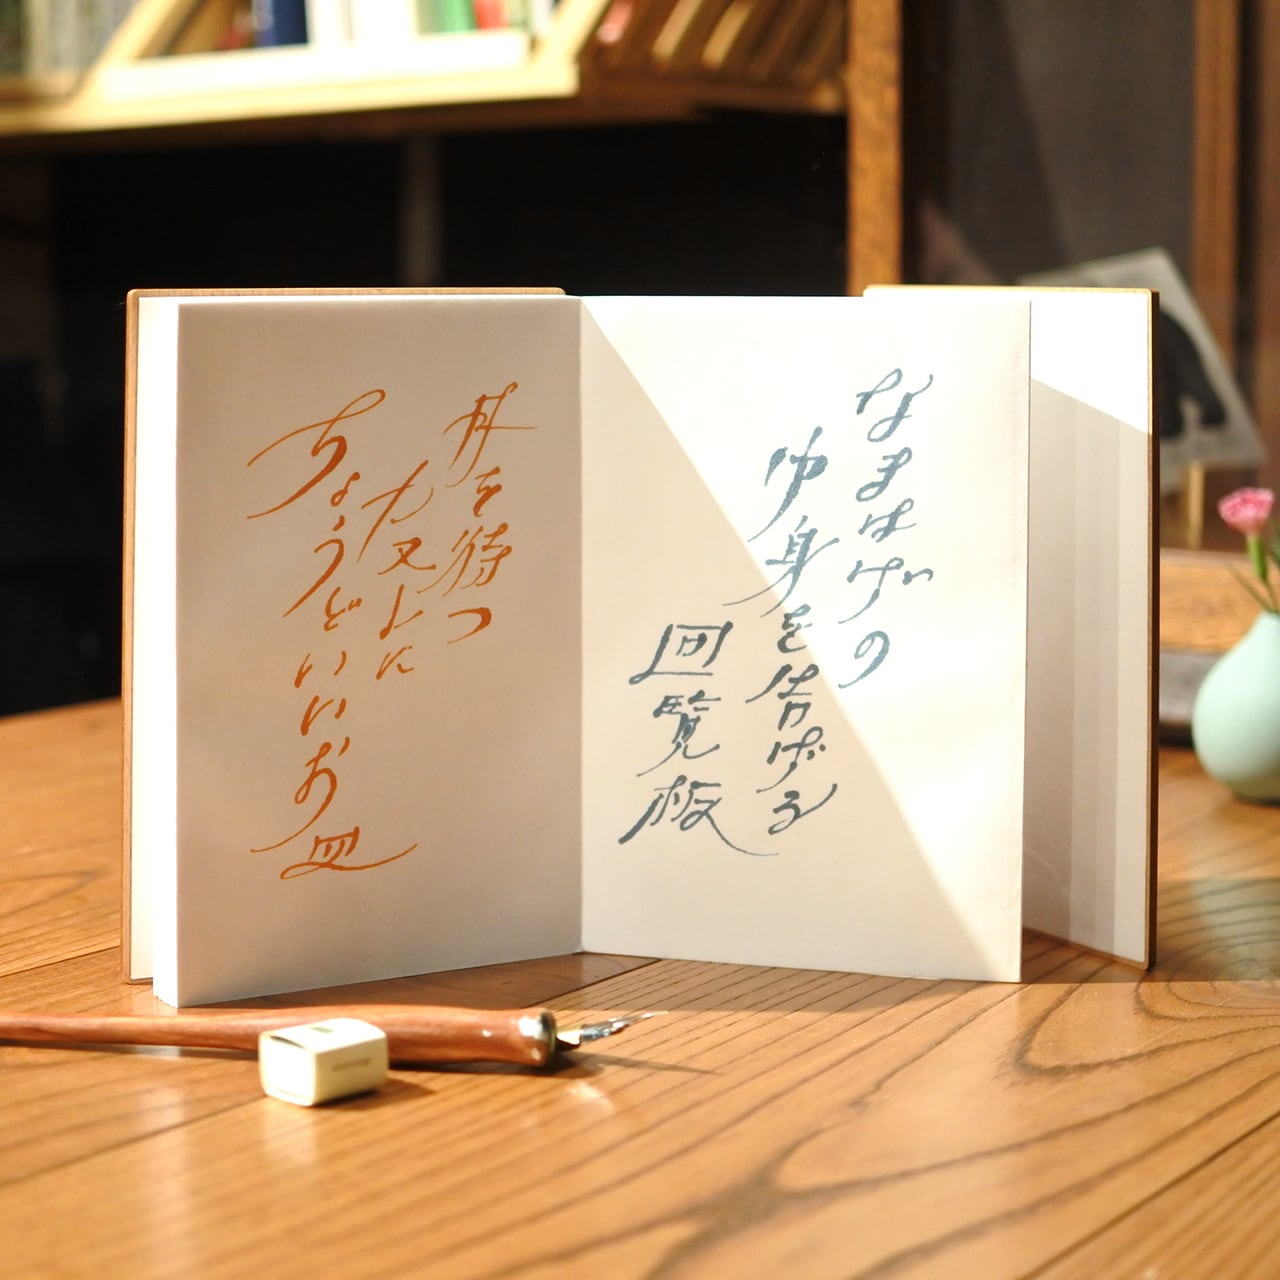 なまはげの
中身を告げる
回覧板
を待つ
カヌレに
ちょうどいいお皿